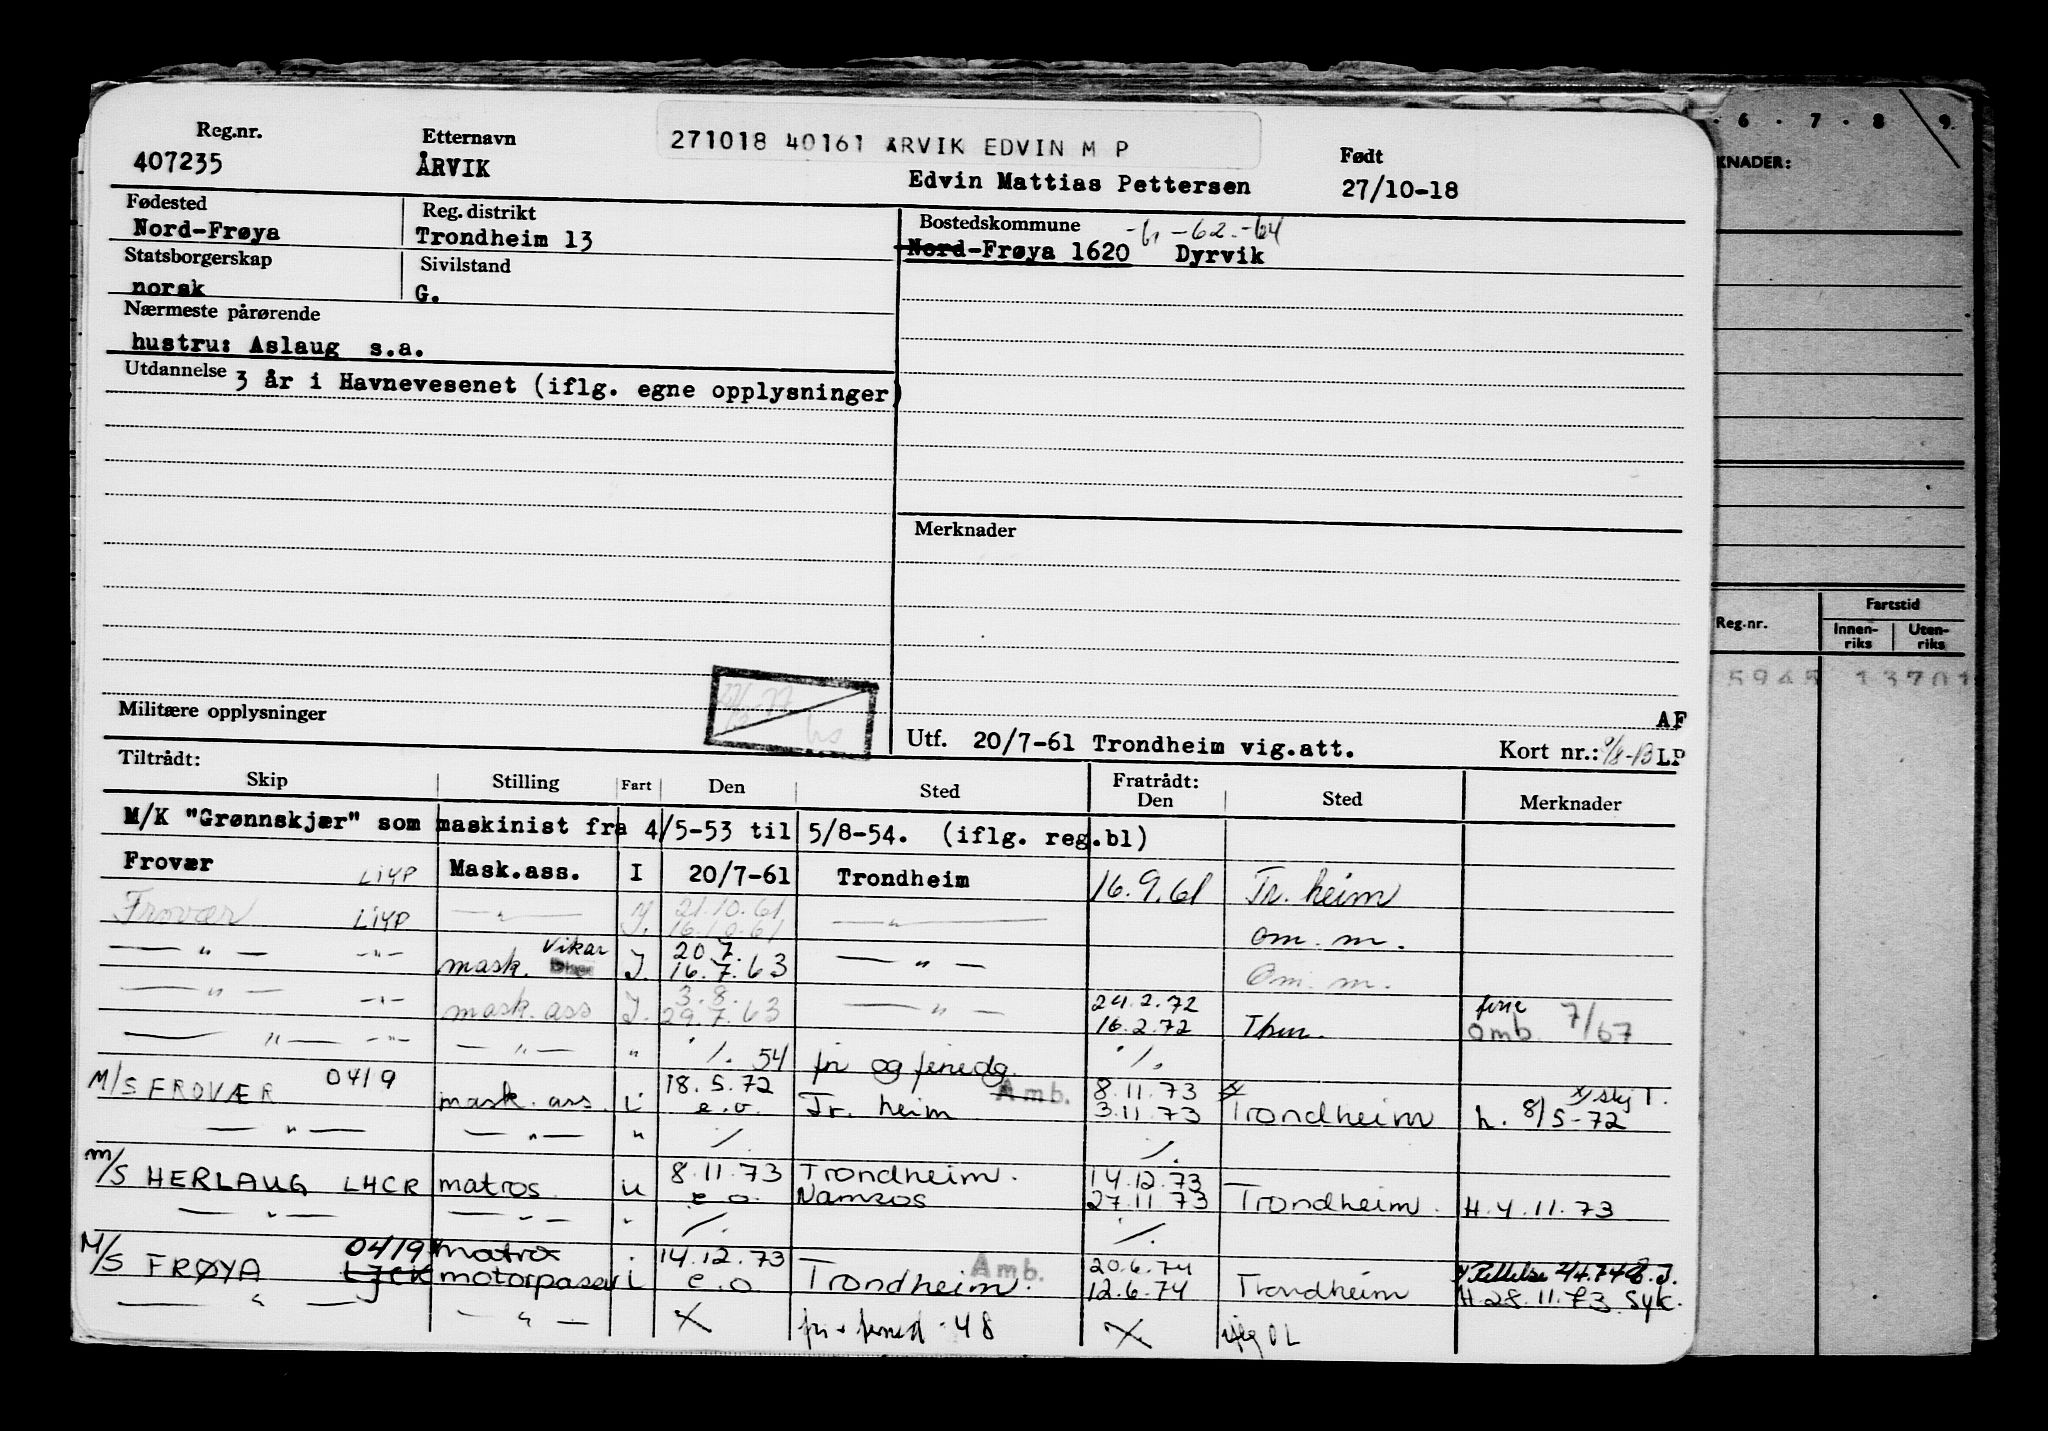 271018 40161 ÅRVIK EDVIN M P
Reg.nr. Etternavn Født
407235 ÅRVIK Edvin Mattias Pettersen 27/10-18
Fødested Reg. distrikt Bostedskommune
Nord-Frøya Trondheim 13 Nord-Frøya 1620 Dyrvik -62.-64
Statsborgerskap Sivilstand
norsk G.
Nærmeste pårørende
hustru: Aslaug s.a.
Utdannelse 3 år i Havnevesenet (iflg. egne opplysninger)
Merknader
Militære opplysninger
AF
Utf. 20/7-61 Trondheim vig.att. Kort nr.: LP
Tiltrådt: Fratrådt:
Skip Stilling Fart Den Sted Den Sted Merknader
M/K "Grønnskjær" som maskinist fra 4/5-53 til 5/8-54. (iflg. reg.bl)
Frovær LIYP Mask.ass. I 20/7-61 Trondheim 16.9.61 Tr. heim
21.10.61
Frovær LIYP — " — J. 16.10.61 — " — om. m.
Vikar 20 7.
— " — -"- mask. J. 16.7.63 — " — Om. m.
3.8. 24.2.72 ferie
— " — -"- mask. ass J. 29.7.63 — " — 16.2.72 Thm. omb 7/67
— " — -"- — " — " ./. 54 fri og feriedg. ./.
18.5.72 Amb. 8.11.73 x x/ skj T.
M/S FROVÆR 0419 mask. ass. i e.o. Tr. heim 3.11.73 Trondheim h. 8/5-72
— " — — " — " ./. ./.
8.11.73 Trondheim. 14.12.73
M/S HERLAUG LHCR matros u e.o. Namsos 27.11.73 Trondheim. H.4.11.73
— " — — " — " ./. ./.
0419 matros 14.12.73 Amb. 20.6.74
M/S FRØYA LJCK motorpasser i e.o Trondheim. 12.6.74 Trondheim H.28.11.73 Syk.
— " — — " — ./. fri + feried - 48 ./. iflg OL
6 . 7 . 8 . 9.
KNADER:
Reg.nr. Fartstid
Innen-riks Uten-riks
5945 13701